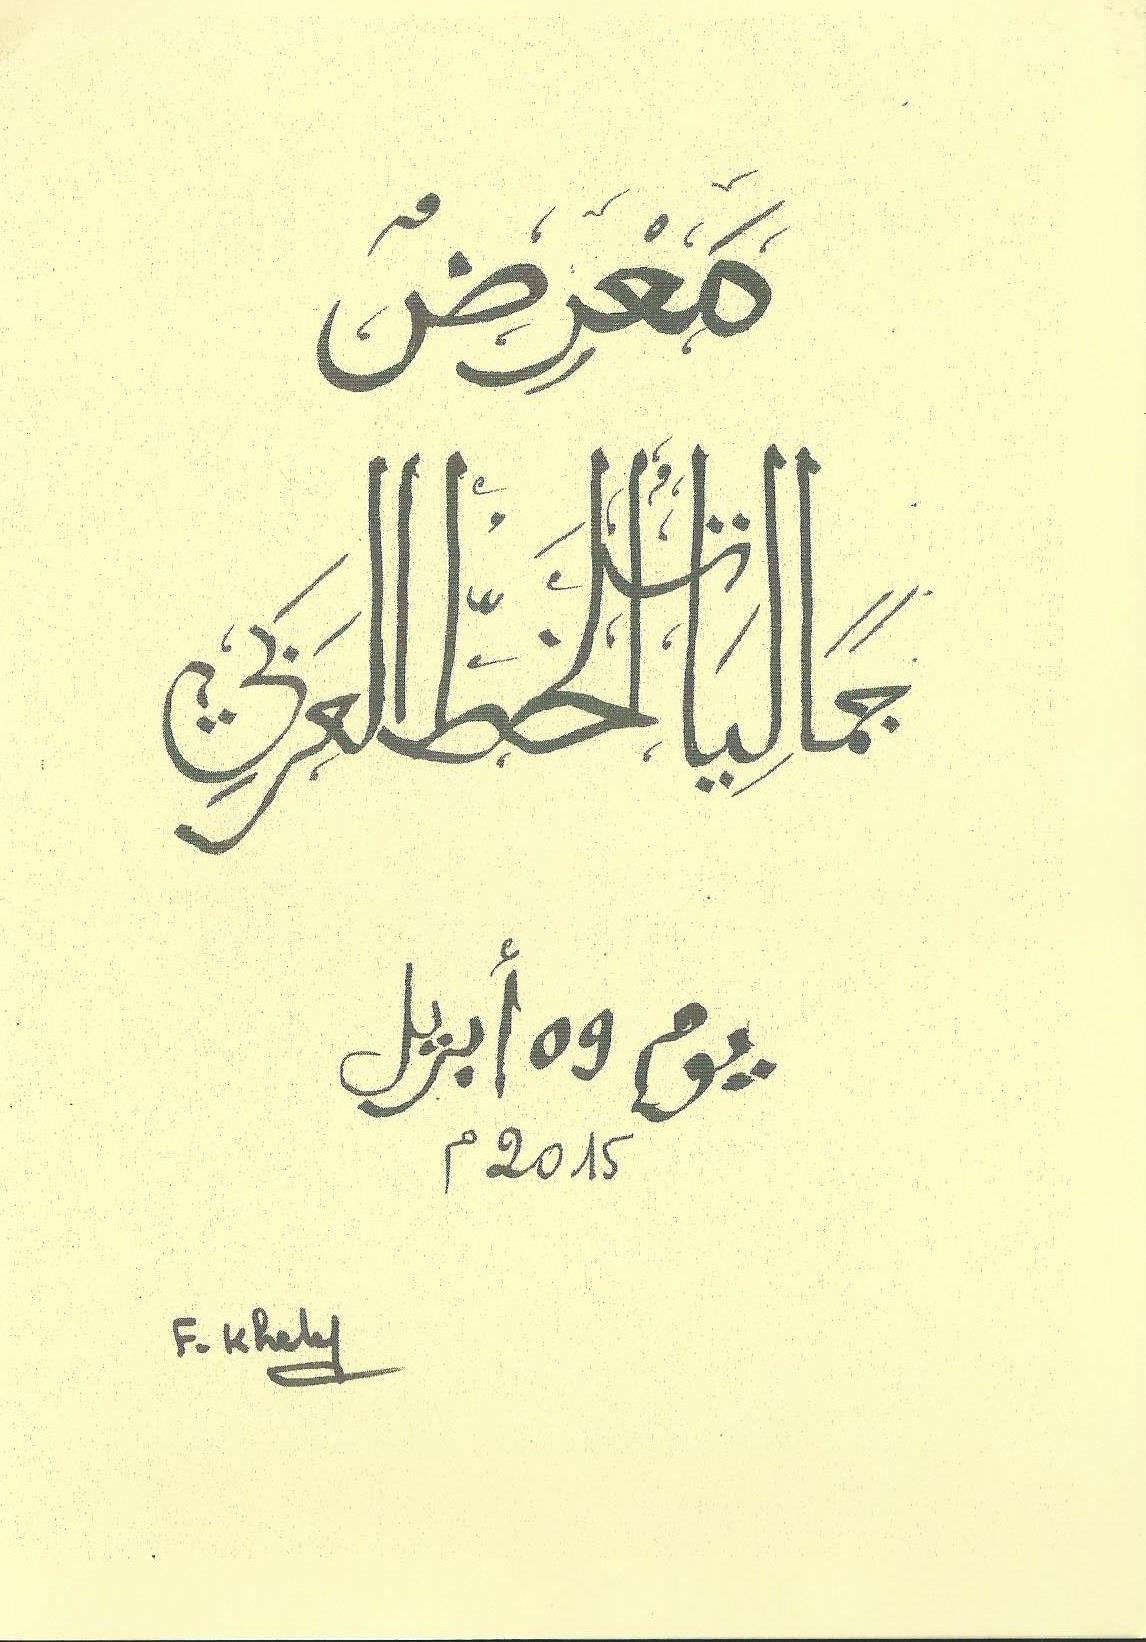 مَعْرِضُ
جَمَالِيَاتُ الخَطِّ العَرَبِي
يوم 09 أبريل
2015 م
F. Khelif